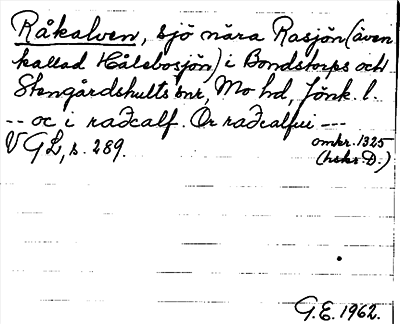 Råkalven, sjö nära Rasjön (även
kallad Hålebosjön) i Bondstorps och
Stengårdshults snr, Mo hd, Jönk. l.
-- oc i raðcalf. Or raðcalfui ---
VGL, s. 289. omkr. 1325
(hskr. D.)
G.E. 1962.